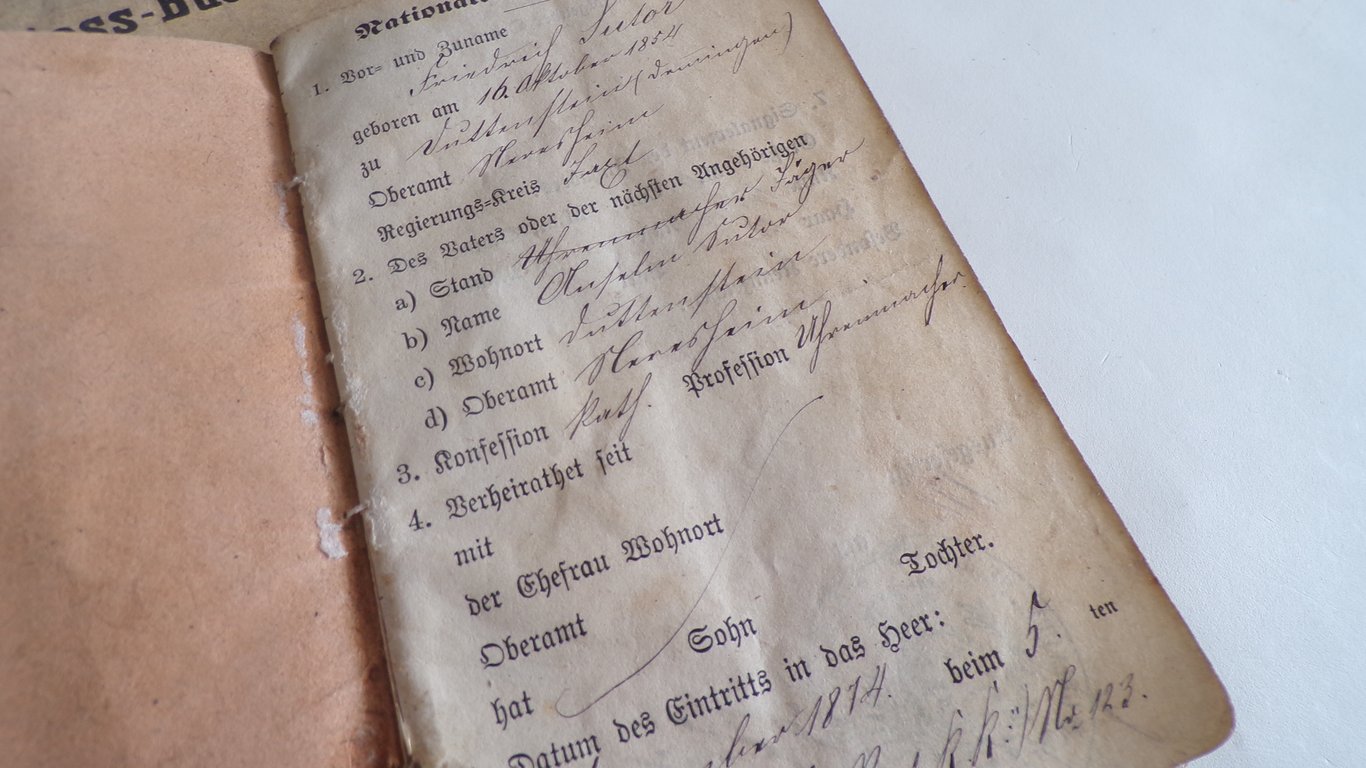 Nationale
1. Vor- und Zuname
Friedrich Sutor
geboren am 16. Oktober 1854
zu Duttenstein (Demingen)
Oberamt Neresheim
Regierungs-Kreis Jaxt
2. Des Vaters oder der nächsten Angehörigen
a) Stand Uhrenmacher Jäger
b) Name Anselm Sutor
c) Wohnort Duttenstein
d) Oberamt Neresheim
3. Konfession kath. Profession Uhrenmacher.
4. Verheirathet seit
mit
der Ehefrau Wohnort
Oberamt
hat Sohn Tochter.
Datum des Eintritts in das Heer:
ber 1874. beim 5. ten
No. 123.